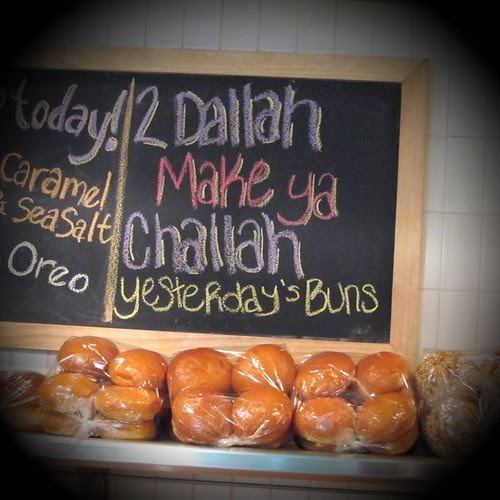 today!
Caramel
& Sea Salt
Oreo
2 Dallah
Make ya
Challah
Yesterday's Buns